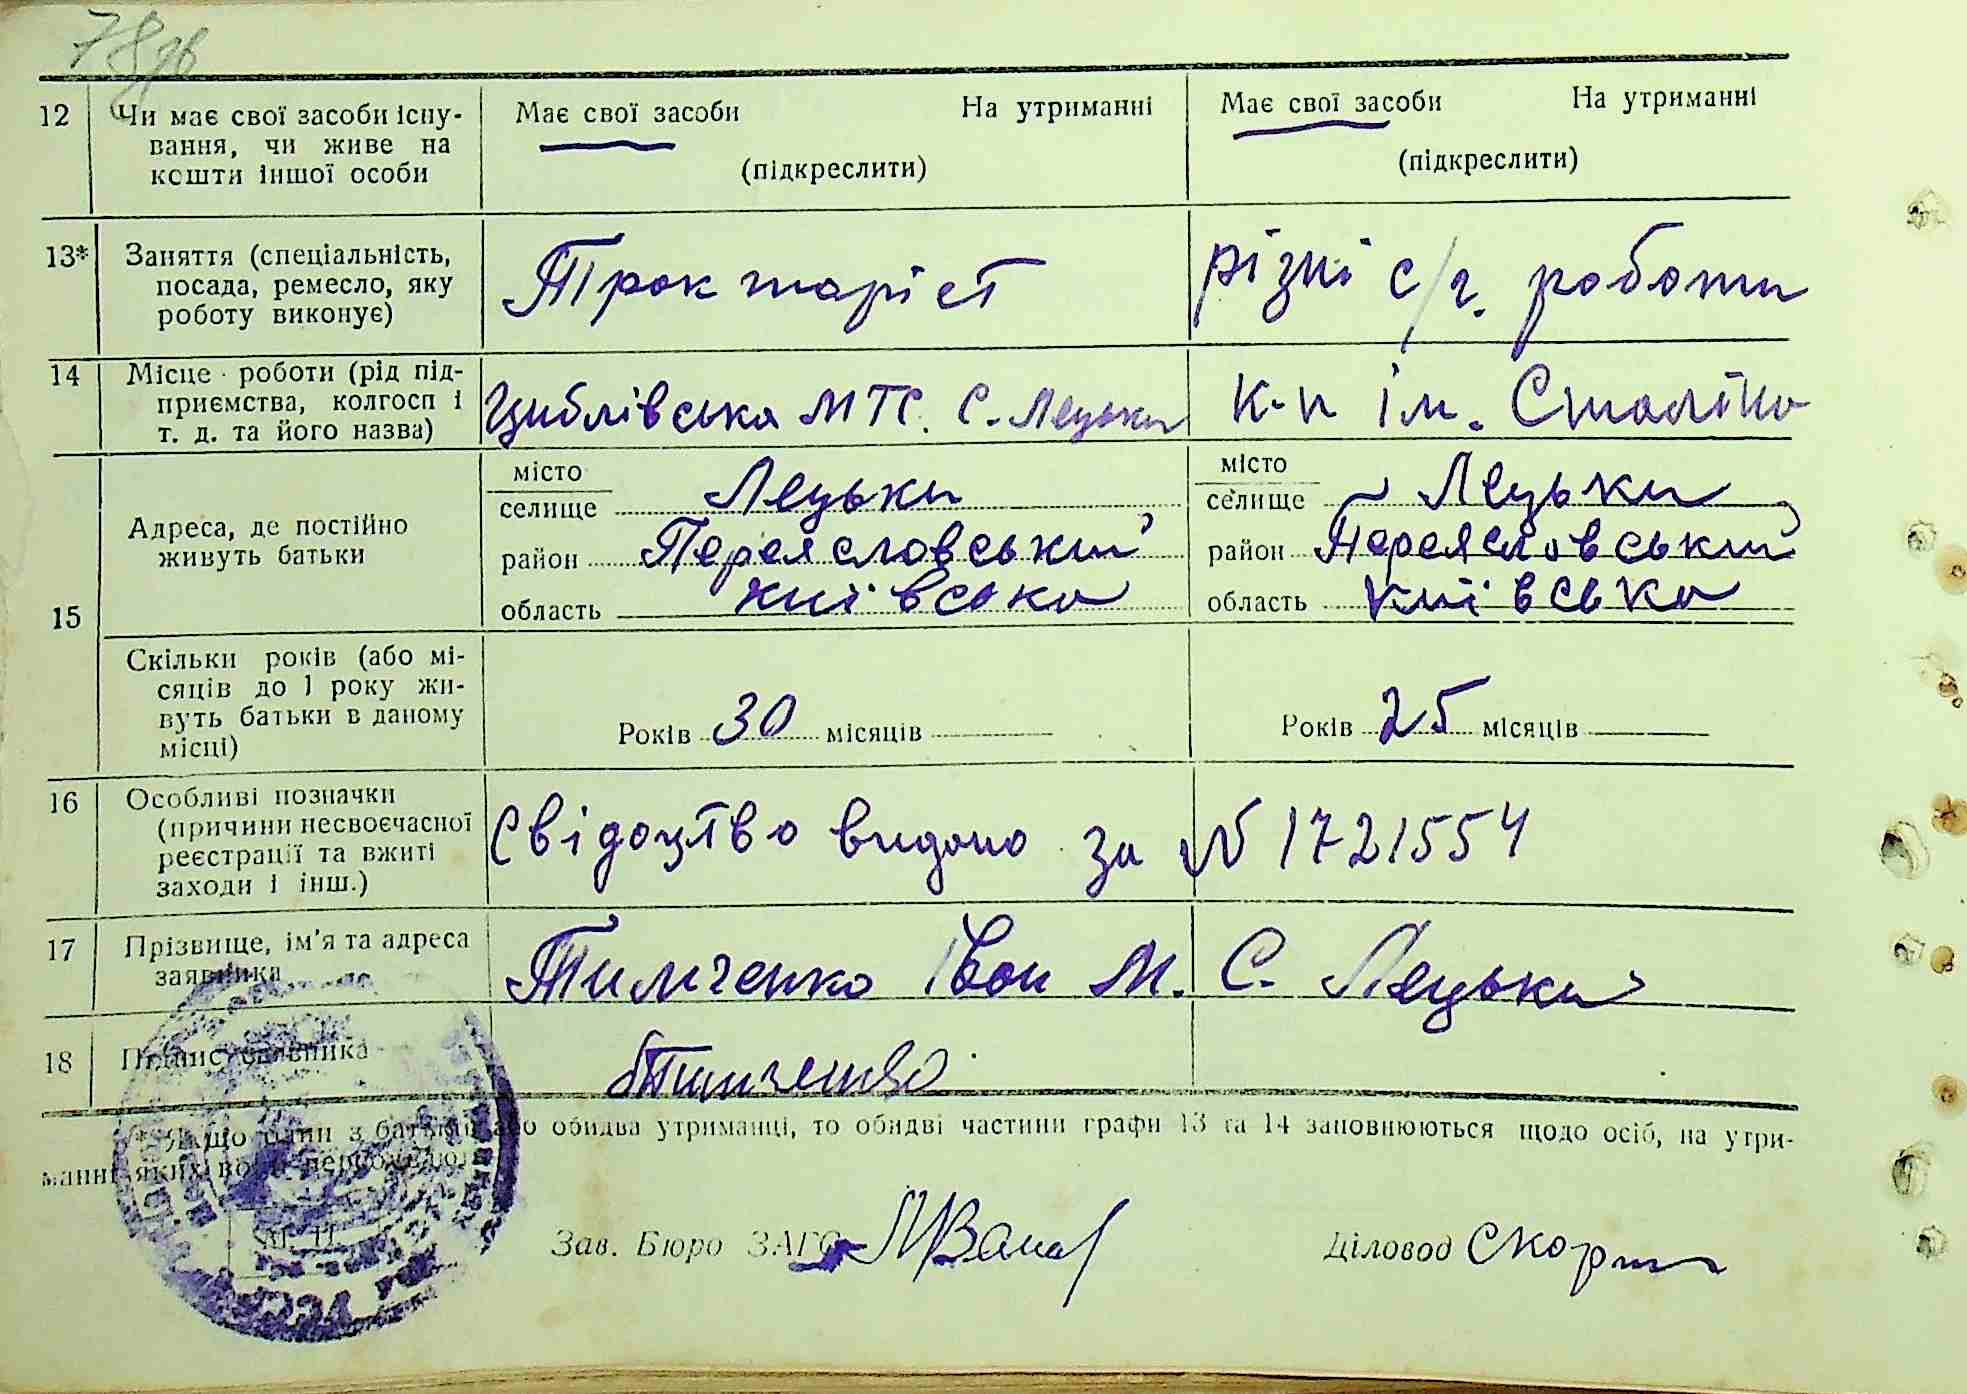 78зв
12 Чи має свої засоби існу-
вання, чи живе на
кошти іншої особи
Має свої засоби На утриманні
(підкреслити)
Має свої засоби На утриманні
(підкреслити)
13* Заняття (спеціальність,
посада, ремесло, яку
роботу виконує)
Трактаріст
різні с/г. роботи
14 Місце роботи (рід під-
приємства, колгосп і
т. д. та його назва)
Циблівська МТС. С. Лецьки
к-п ім. Сталіна
15
Адреса, де постійно
живуть батьки
місто
селище Лецьки
район Переясловський
область київська
місто
селище Лецьки
район Переясловський
область київська
Скільки років (або мі-
сяців до 1 року жи-
вуть батьки в даному
місці)
Років 30 місяців
Років 25 місяців
16 Особливі позначки
(причини несвоєчасної
реєстрації та вжиті
заходи і інш.)
Свідоцтво видано за № 1721554
17 Прізвище, ім'я та адреса
заявника
Тимченко Іван М. С. Лецьки
18 Підпис заявника
Тимченко
* Якщо один з батьків або обидва утриманці, то обидві частини графи 13 та 14 заповнюються щодо осіб, на утри-
манні яких вони перебувають
Зав. Бюро ЗАГС
Діловод